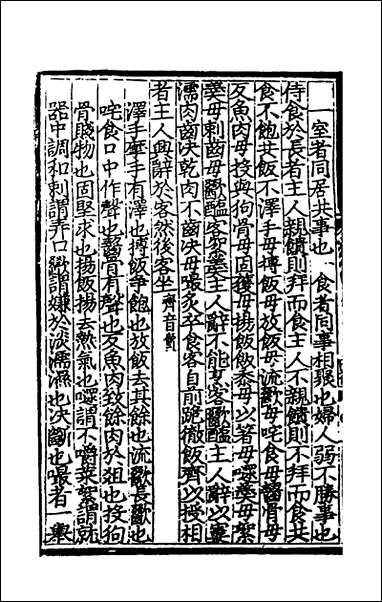 一室者同居共事也一食者同事相聚也婦人弱不勝事也
侍食於長者主人親饋則拜而食主人不親饋則不拜而食共
食不飽共飯不澤手毋摶飯毋放飯毋流歠毋咤食毋齧骨毋
反魚肉毋投與狗骨毋固獲毋揚飯飯黍毋以箸毋嚃羹毋絮
羹毋刺齒毋歠醢客絮羹主人辭不能烹客歠醢主人辭以窶
濡肉齒決乾肉不齒決毋嘬炙卒食客自前跪徹飯齊以授相
者主人興辭於客然後客坐齊音賷
澤手㨃手有澤也摶飯爭飽也放飯去其餘也流歠長歠也
咤食口中作聲也齧骨有聲也反魚肉致餘肉於俎也投狗
骨賤物也固堅求也揚飯揚去熱氣也嚃謂不嚼菜絮謂就
器中調和刺謂弄口歠謂嫌於淡濡濕也決斷也嘬者一舉